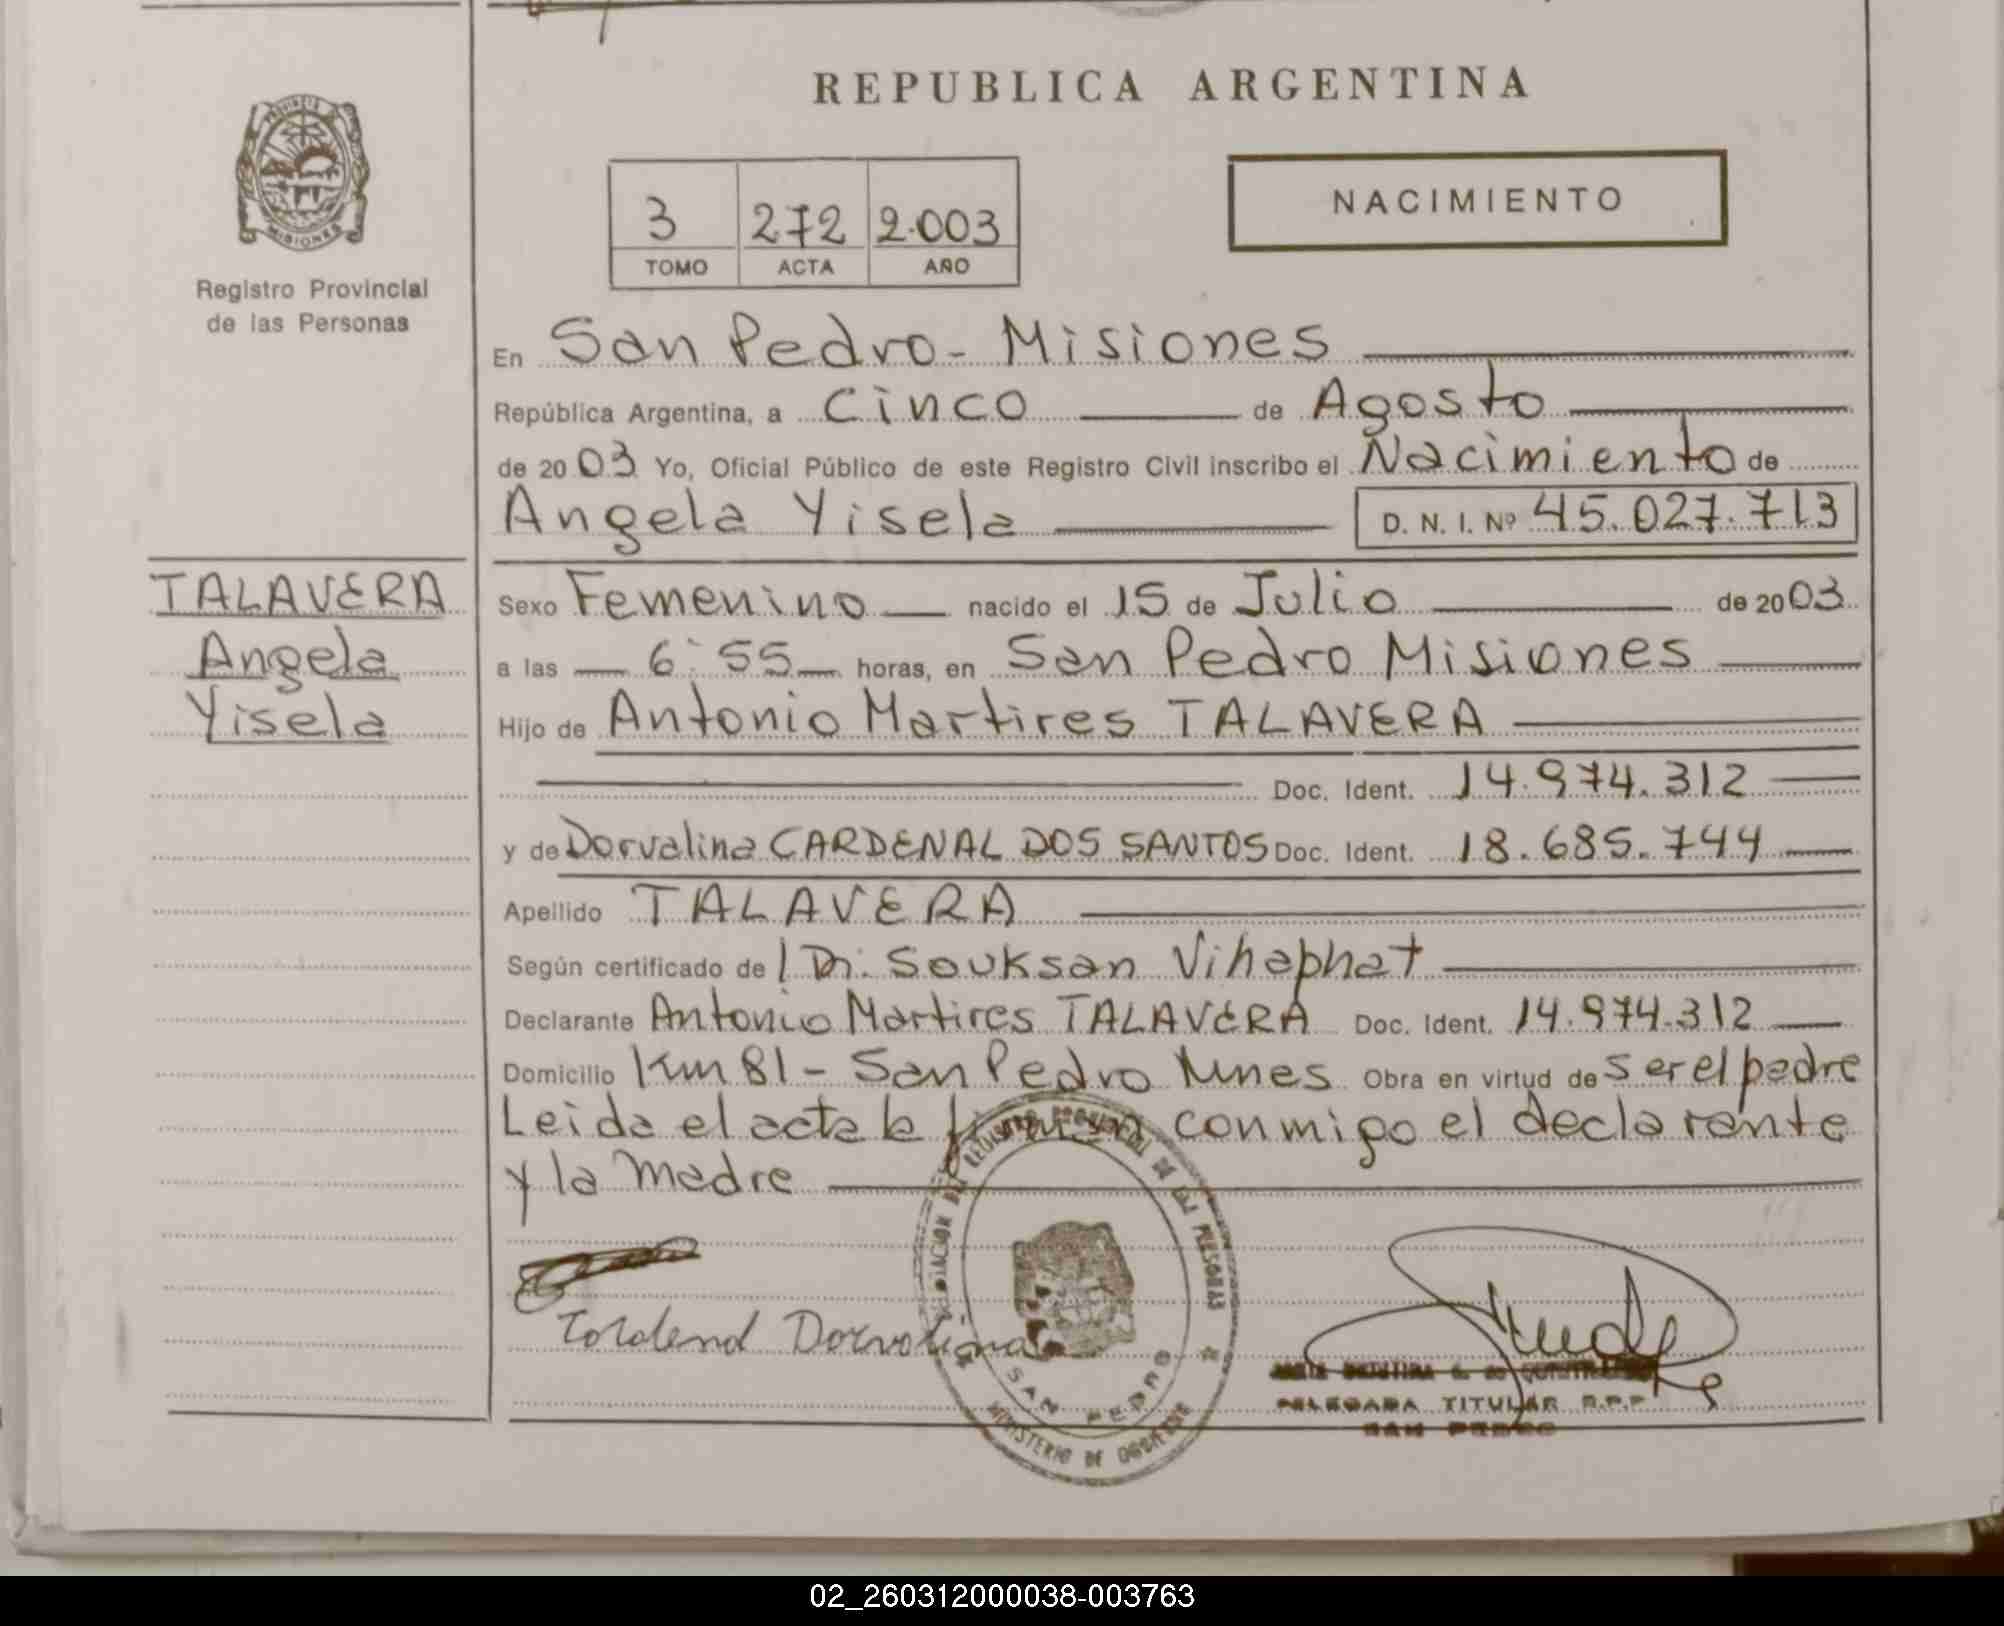 REPUBLICA ARGENTINA
PROVINCIA
MISIONES
Registro Provincial
de las Personas
3 272 2.003
TOMO ACTA AÑO
NACIMIENTO
En San Pedro - Misiones
República Argentina, a Cinco de Agosto
de 2003 Yo, Oficial Público de este Registro Civil inscribo el Nacimiento de
Angela Yisela D. N. I. Nº 45.027.713
TALAVERA
Angela
Yisela
Sexo Femenino nacido el 15 de Julio de 2003
a las 6:55 horas, en San Pedro Misiones
Hijo de Antonio Martires TALAVERA
Doc. Ident. 14.974.312
y de Dorvalina CARDENAL DOS SANTOS Doc. Ident. 18.685.744
Apellido TALAVERA
Según certificado de Dr. Souksan Vihaphat
Declarante Antonio Martires TALAVERA Doc. Ident. 14.974.312
Domicilio Km 81 - San Pedro Mnes Obra en virtud de ser el padre
Leida el acta la firman conmigo el declarante
y la Madre
Dorvalina
DE LAS PERSONAS
SAN PEDRO
MINISTERIO DE GOBIERNO
DELEGADA TITULAR R.P.P
SAN PEDRO
02_260312000038-003763